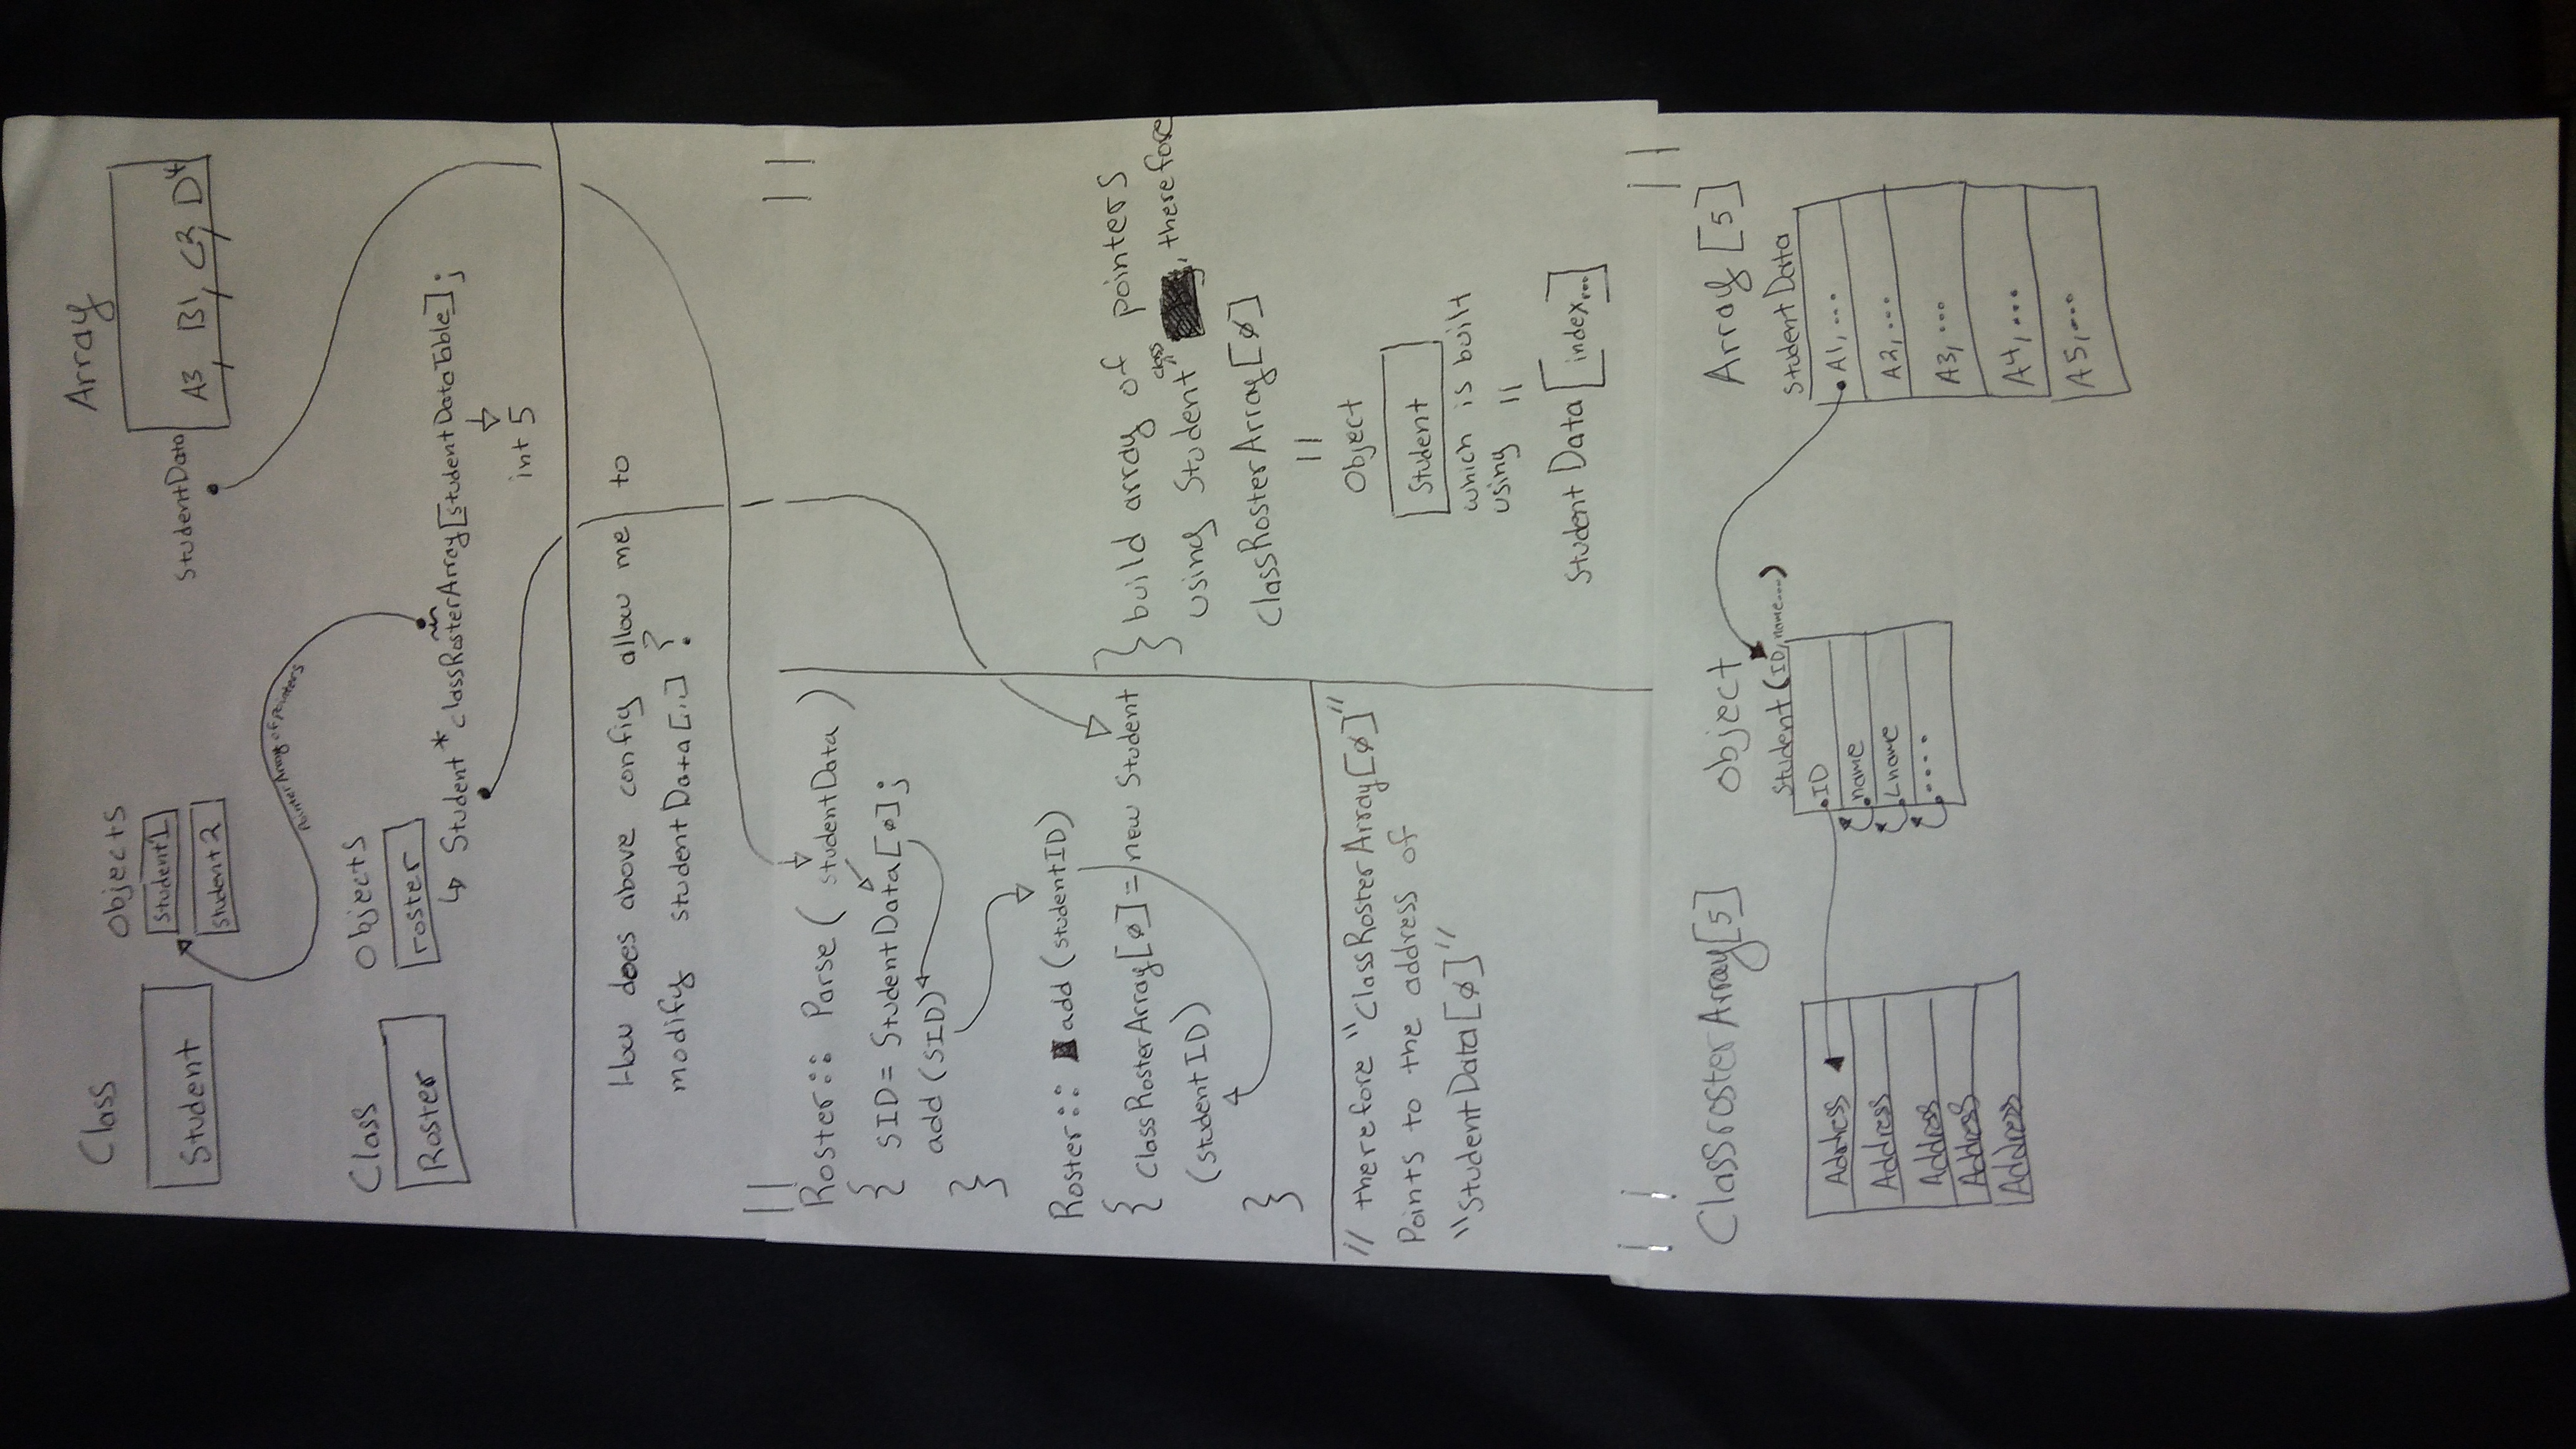 Class
Objects
Array
Student
Student1
Student2
StudentData
A3, B1, C2, D4
Pointer Array of pointers
Class
Objects
Roster
roster
Student *classRosterArray[studentDataTable];
int 5
How does above config allow me to
modify studentData[...] ?
Roster:: Parse( studentData )
{ SID= StudentData[ø];
add (SID)
}
Roster:: add (studentID)
{ ClassRosterArray[ø]= new Student
(studentID)
}
} build array of pointers
using Student class, therefore
ClassRosterArray[ø]
||
Object
Student
which is built
using ||
Student Data [index...]
// therefore "ClassRosterArray[ø]"
Points to the address of
"StudentData[ø]"
ClassrosterArray[5]
object
Array [5]
Student (ID, name...)
Student Data
Address
Address
Address
Address
Address
ID
name
Lname
....
A1, ...
A2, ...
A3, ...
A4, ...
A5, ...